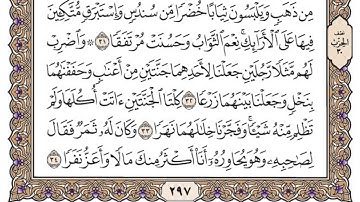 مِن ذَهَبٍ وَيَلْبَسُونَ ثِيَابًا خُضْرًا مِّن سُندُسٍ وَإِسْتَبْرَقٍ مُّتَّكِـِٔينَ
فِيهَا عَلَى ٱلْأَرَآئِكِ ۚ نِعْمَ ٱلثَّوَابُ وَحَسُنَتْ مُرْتَفَقًا ٣١ ۞ وَٱضْرِبْ
لَهُم مَّثَلًا رَّجُلَيْنِ جَعَلْنَا لِأَحَدِهِمَا جَنَّتَيْنِ مِنْ أَعْنَٰبٍ وَحَفَفْنَٰهُمَا
بِنَخْلٍ وَجَعَلْنَا بَيْنَهُمَا زَرْعًا ٣٢ كِلْتَا ٱلْجَنَّتَيْنِ ءَاتَتْ أُكُلَهَا وَلَمْ
تَظْلِم مِّنْهُ شَيْـًٔا ۚ وَفَجَّرْنَا خِلَٰلَهُمَا نَهَرًا ٣٣ وَكَانَ لَهُۥ ثَمَرٌ فَقَالَ
لِصَٰحِبِهِۦ وَهُوَ يُحَاوِرُهُۥٓ أَنَا۠ أَكْثَرُ مِنكَ مَالًا وَأَعَزُّ نَفَرًا ٣٤
٢٩٧